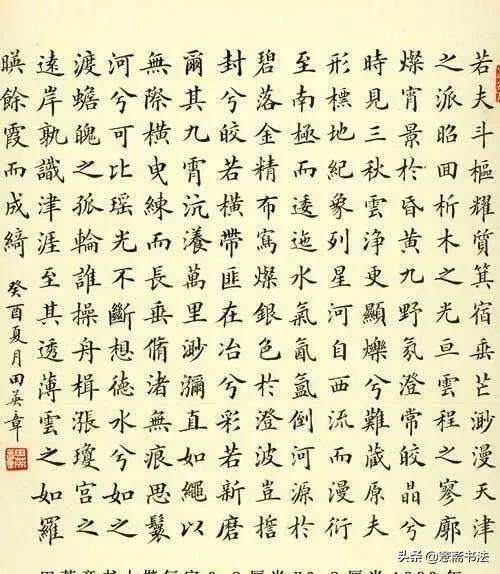 若夫斗樞耀質箕宿垂芒渺漫天津
之派昭回析木之光亘雲程之寥廓
燦宵景於昏黃九野氛澄常皎晶兮
時見三秋雲淨更顯爍兮難藏原夫
形標地紀象列星河自西流而漫衍
至南極而逶迤水氣氤氳倒河源於
碧落金精布寫燦銀色於澄波豈擔
封兮皎若橫帶匪在冶兮彩若新磨
爾其九霄沆瀁萬里渺瀰直如繩以
無際橫曳練而長垂脩渚無痕思褰
河兮可比瑤光不斷想德水兮如之
渡蟾魄之孤輪誰操舟楫漲瓊宮之
遠岸孰識津涯至其透薄雲之如羅
暎餘霞而成綺
癸酉夏月田英章
头条 @憲斋书法